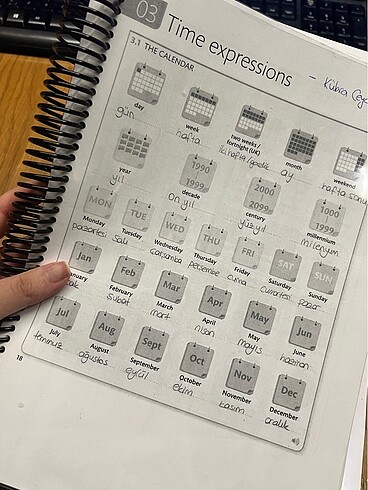 03
Time expressions
- Kübra
3.1 THE CALENDAR
day
week
two weeks /
fortnight (UK)
month
weekend
gün
hafta
iki hafta
ay
hafta sonu
1990
1999
2000
2099
1000
1999
year
decade
century
millennium
yıl
on yıl
yüzyıl
milenyum
MON
TUE
WED
THU
FRI
SAT
SUN
Monday
Tuesday
Wednesday
Thursday
Friday
Saturday
Sunday
pazartesi
salı
çarşamba
perşembe
cuma
cumartesi
pazar
Jan
Feb
Mar
Apr
May
Jun
January
February
March
April
May
June
şubat
mart
nisan
mayıs
haziran
Jul
Aug
Sept
Oct
Nov
Dec
July
August
September
October
November
December
temmuz
ağustos
eylül
ekim
kasım
aralık
18